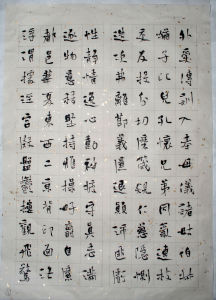 外受傅訓入奉母儀諸姑伯叔
猶子比兒孔懷兄弟同氣連枝
交友投分切磨箴規仁慈隱惻
造次弗離節義廉退顛沛匪虧
性靜情逸心動神疲守真志滿
逐物意移堅持雅操好爵自縻
都邑華夏東西二京背邙面洛
浮渭據涇宮殿盤鬱樓觀飛驚